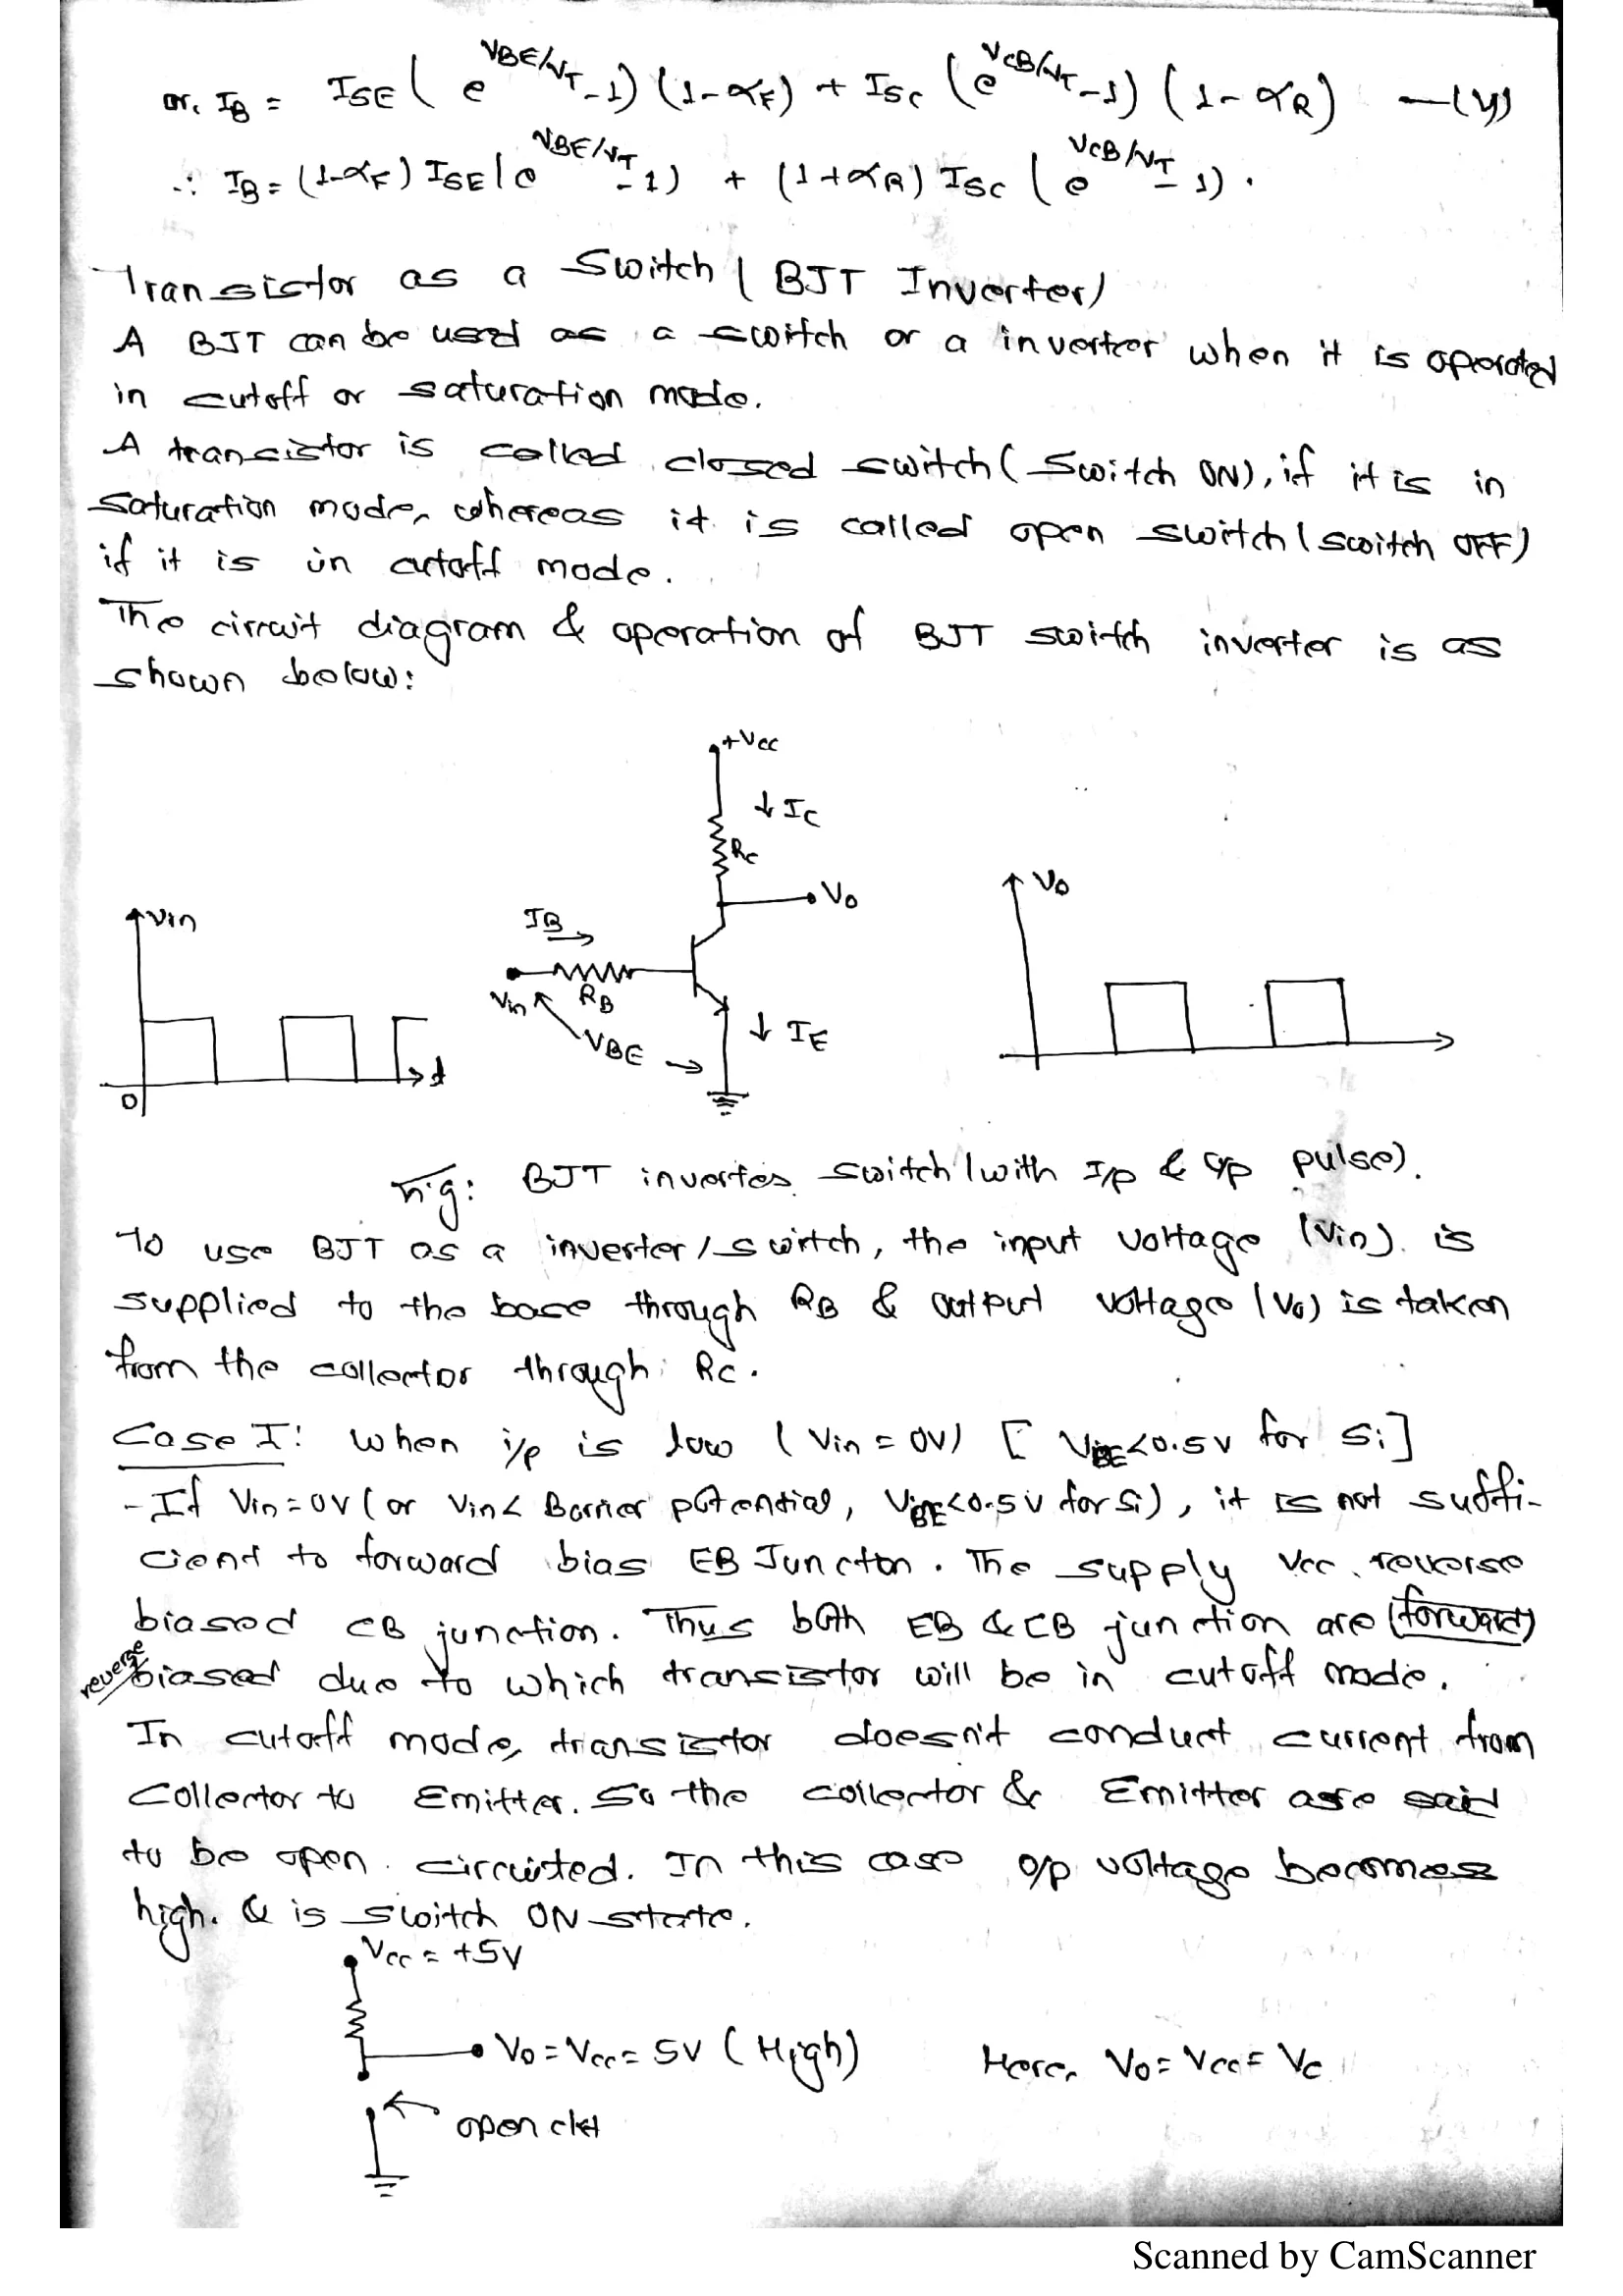 or, IB = ISE ( e^VBE/VT - 1) (1-αF) + ISC ( e^VCB/VT - 1) (1-αR) —(v)
∴ IB = (1-αF) ISE ( e^VBE/VT - 1) + (1+αR) ISC ( e^VCB/VT - 1) .
Transistor as a Switch ( BJT Inverter)
A BJT can be used as a switch or a inverter when it is operated
in cutoff or saturation mode.
A transistor is called closed switch ( Switch ON), if it is in
saturation mode, whereas it is called open switch ( switch OFF)
if it is in cutoff mode.
The circuit diagram & operation of BJT switch inverter is as
shown below:
+Vcc
↓ IC
Rc
Vo
Vo
Vin
IB
Vin
RB
VBE
↓ IE
t
0
Fig: BJT inverter switch (with I/p & o/p pulse).
To use BJT as a inverter / switch, the input voltage (Vin) is
supplied to the base through RB & output voltage (Vo) is taken
from the collector through Rc.
Case I: When i/p is low ( Vin = 0V) [ VBE<0.5V for Si]
- If Vin = 0V ( or Vin < Barrier potential, VBE<0.5V for Si), it is not suffi-
cient to forward bias EB Juncton. The supply Vcc reverse
biased CB junction. Thus both EB & CB junction are (forward)
reverse
biased due to which transistor will be in cutoff mode.
In cutoff mode, transistor doesn't conduct current from
Collector to Emitter. So the collector & Emitter are said
to be open circuited. In this case o/p voltage becomes
high. & is switch ON state.
Vcc = +5V
Vo = Vcc = 5V ( High) Here, Vo = Vcc = Vc
open ckt
Scanned by CamScanner